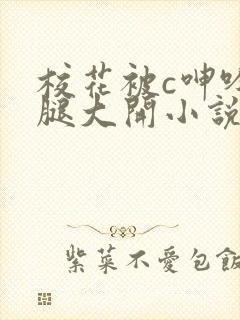 校花被c呻吟
腿大開小說
紫菜不愛包飯